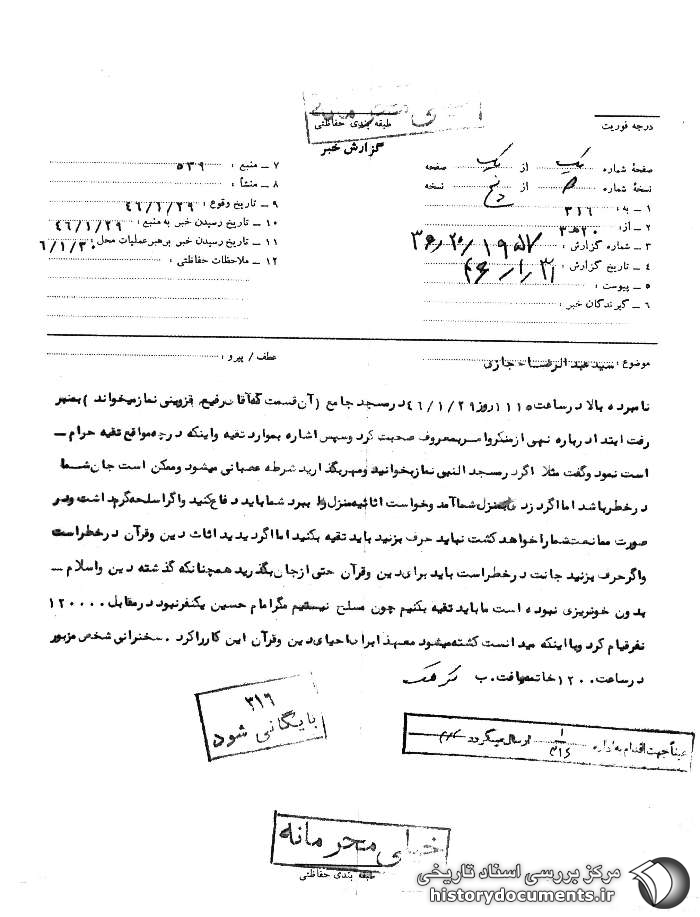 خیلی محرمانه
طبقه بندی حفاظتی
گزارش خبر
درجه فوریت
صفحهٔ شماره یک از یک صفحه
نسخهٔ شماره از پنج نسخه
۱ – به : ۳۱۶
۲ – از : ۲۰ هـ ۳
۳ – شماره گزارش : ۱۹۵۷ / ۲۰ / ۳۶
۴ – تاریخ گزارش : ۴۶/۱/۳۱
۵ – پیوست :
۶ – گیرندگان خبر :
۷ – منبع : ۵۳۹
۸ – منشأ :
۹ – تاریخ وقوع : ۴۶/۱/۲۹
۱۰ – تاریخ رسیدن خبر به منبع : ۴۶/۱/۲۹
۱۱ – تاریخ رسیدن خبر برهبر عملیات محل : ۶/۱/۳۰
۱۲ – ملاحظات حفاظتی :
موضوع : سید عبدالرضا حجازی
عطف / پیرو :
نامبرده بالا در ساعت ۱۱۱۵ روز ۴۶/۱/۲۹ در مسجد جامع (آن قسمت که آقا رفیع قزوینی نماز میخواند) بمنبر
رفت ابتدا درباره نهی از منکر و امر بمعروف صحبت کرد و سپس اشاره بموارد تقیه و اینکه در چه مواقع تقیه حرام –
است نمود و گفت مثلا اگر در مسجد النبی نماز بخوانید و مهر بگذارید شرطه عصبانی میشود و ممکن است جان شما
در خطر باشد اما اگر دزد بمنزل شما آمد و خواست اثاثیه منزل را ببرد شما باید دفاع کنید و اگر اسلحه گرم داشت و در
صورت ممانعت شما را خواهد کشت نباید حرف بزنید باید تقیه بکنید اما اگر دیدید اثاث دین و قرآن در خطر است
و اگر حرف بزنید جانت در خطر است باید برای دین و قرآن حتی از جان بگذرید همچنانکه گذشته دین و اسلام –
بدون خونریزی نبوده است ما باید تقیه بکنیم چون مسلح نیستیم مگر امام حسین یکنفر نبود در مقابل ۱۲۰۰۰۰
نفر قیام کرد و با اینکه میدانست کشته میشود معهذا برای احیای دین و قرآن این کار را کرد . سخنرانی شخص مزبور
در ساعت ۱۲۰۰ خاتمه یافت . ب
۳۱۶
بایگانی شود
عیناً جهت اقدام به اداره ۳۱۶ ارسال میگردد
خیلی محرمانه
طبقه بندی حفاظتی
مرکز بررسی اسناد تاریخی
historydocuments.ir